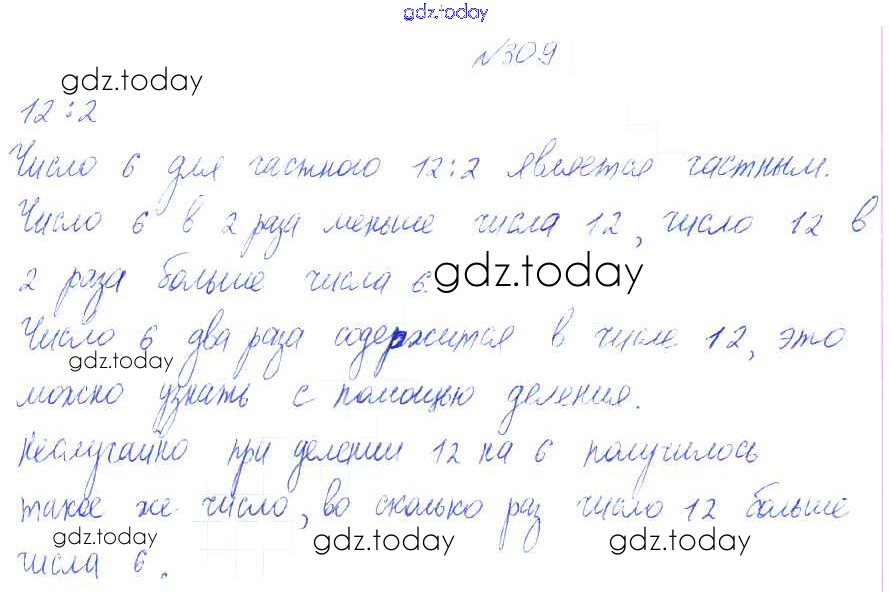 gdz.today
№309
gdz.today
12:2
Число 6 для частного 12:2 является частным.
Число 6 в 2 раза меньше числа 12, число 12 в
2 раза больше числа 6.
gdz.today
Число 6 два раза содержится в числе 12, это
gdz.today
можно узнать с помощью деления.
Неслучайно при делении 12 на 6 получилось
такое же число, во сколько раз число 12 больше
gdz.today gdz.today gdz.today
числа 6.